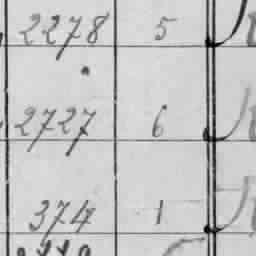 2278 5
2727 6
374 1